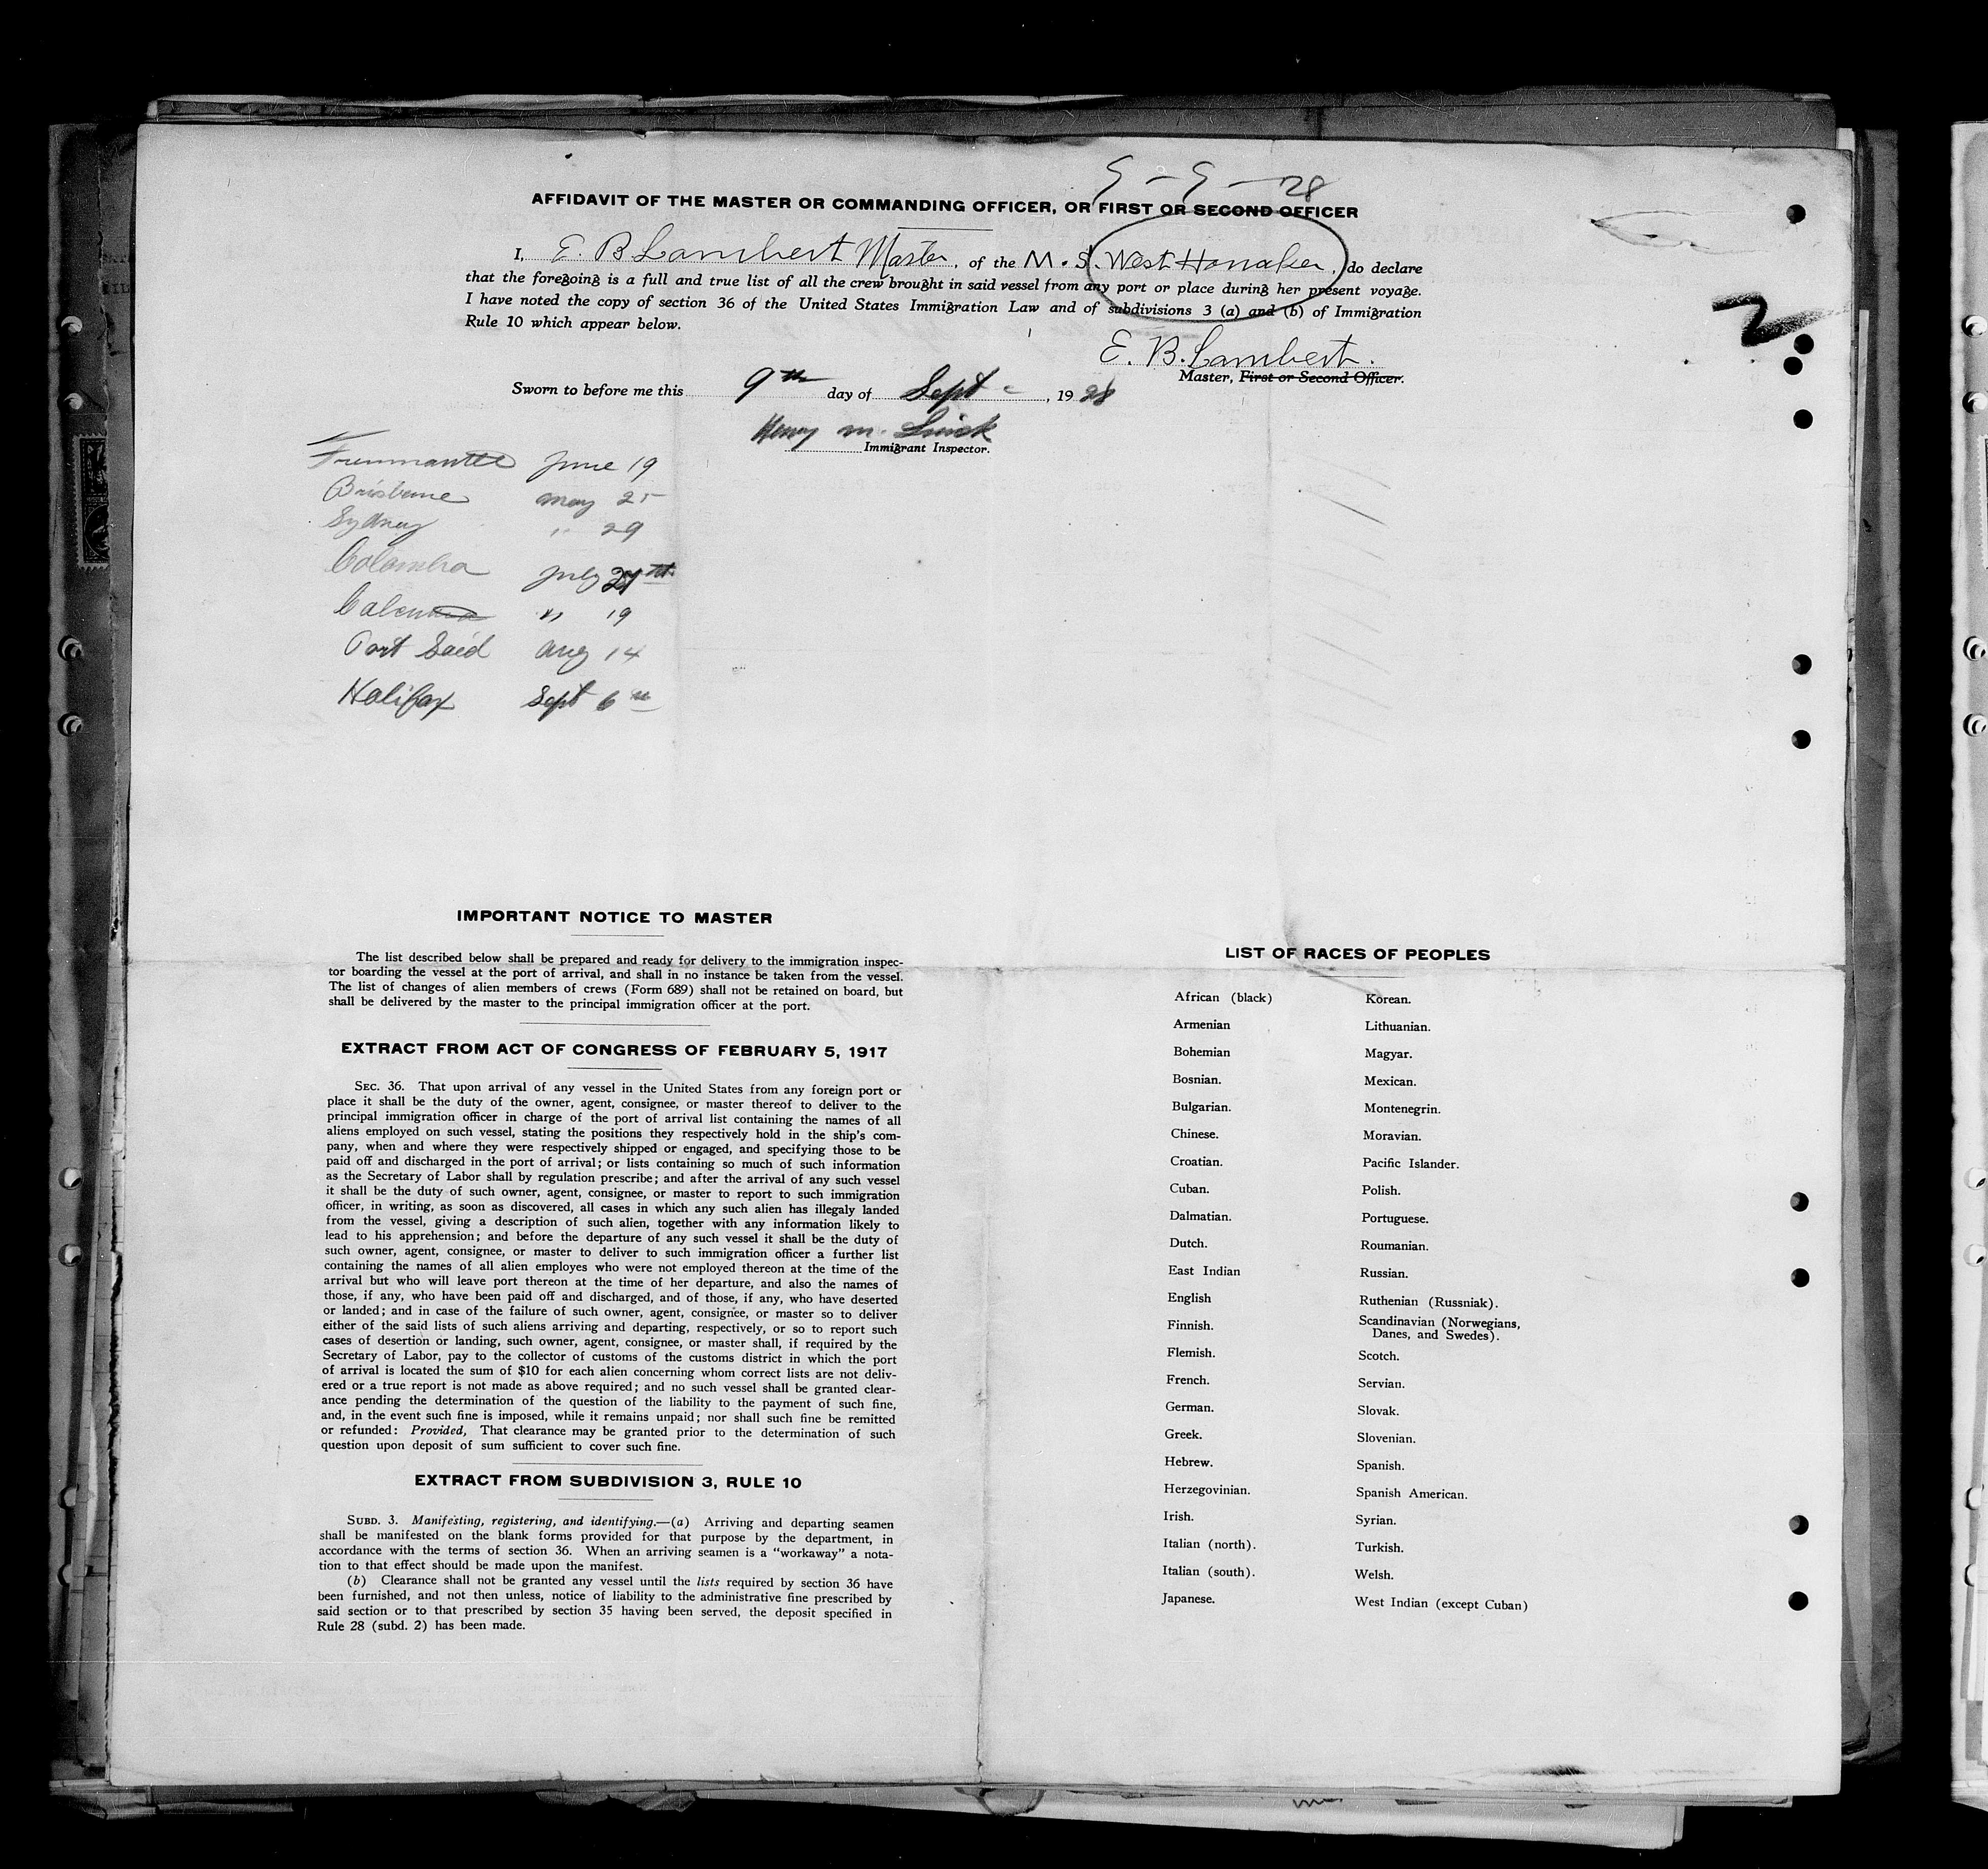 9 - 9 - 28
AFFIDAVIT OF THE MASTER OR COMMANDING OFFICER, OR FIRST OR SECOND OFFICER
I, E. B Lambert Master, of the M.S. West Honaker, do declare
that the foregoing is a full and true list of all the crew brought in said vessel from any port or place during her present voyage.
I have noted the copy of section 36 of the United States Immigration Law and of subdivisions 3 (a) and (b) of Immigration
Rule 10 which appear below.
2
E. B. Lambert.
Master, First or Second Officer.
Sworn to before me this 9th day of Sept , 19 28
Henry M.
Immigrant Inspector.
Fremmantle June 19
Brisbane May 25
Sydney " 29
Colombia July
" 19
Port Said Aug 14
Halifax Sept 6th
IMPORTANT NOTICE TO MASTER
The list described below shall be prepared and ready for delivery to the immigration inspec-
tor boarding the vessel at the port of arrival, and shall in no instance be taken from the vessel.
The list of changes of alien members of crews (Form 689) shall not be retained on board, but
shall be delivered by the master to the principal immigration officer at the port.
EXTRACT FROM ACT OF CONGRESS OF FEBRUARY 5, 1917
SEC. 36. That upon arrival of any vessel in the United States from any foreign port or
place it shall be the duty of the owner, agent, consignee, or master thereof to deliver to the
principal immigration officer in charge of the port of arrival list containing the names of all
aliens employed on such vessel, stating the positions they respectively hold in the ship's com-
pany, when and where they were respectively shipped or engaged, and specifying those to be
paid off and discharged in the port of arrival; or lists containing so much of such information
as the Secretary of Labor shall by regulation prescribe; and after the arrival of any such vessel
it shall be the duty of such owner, agent, consignee, or master to report to such immigration
officer, in writing, as soon as discovered, all cases in which any such alien has illegaly landed
from the vessel, giving a description of such alien, together with any information likely to
lead to his apprehension; and before the departure of any such vessel it shall be the duty of
such owner, agent, consignee, or master to deliver to such immigration officer a further list
containing the names of all alien employes who were not employed thereon at the time of the
arrival but who will leave port thereon at the time of her departure, and also the names of
those, if any, who have been paid off and discharged, and of those, if any, who have deserted
or landed; and in case of the failure of such owner, agent, consignee, or master so to deliver
either of the said lists of such aliens arriving and departing, respectively, or so to report such
cases of desertion or landing, such owner, agent, consignee, or master shall, if required by the
Secretary of Labor, pay to the collector of customs of the customs district in which the port
of arrival is located the sum of $10 for each alien concerning whom correct lists are not deliv-
ered or a true report is not made as above required; and no such vessel shall be granted clear-
ance pending the determination of the question of the liability to the payment of such fine,
and, in the event such fine is imposed, while it remains unpaid; nor shall such fine be remitted
or refunded: Provided, That clearance may be granted prior to the determination of such
question upon deposit of sum sufficient to cover such fine.
EXTRACT FROM SUBDIVISION 3, RULE 10
SUBD. 3. Manifesting, registering, and identifying.—(a) Arriving and departing seamen
shall be manifested on the blank forms provided for that purpose by the department, in
accordance with the terms of section 36. When an arriving seamen is a "workaway" a nota-
tion to that effect should be made upon the manifest.
(b) Clearance shall not be granted any vessel until the lists required by section 36 have
been furnished, and not then unless, notice of liability to the administrative fine prescribed by
said section or to that prescribed by section 35 having been served, the deposit specified in
Rule 28 (subd. 2) has been made.
LIST OF RACES OF PEOPLES
African (black) Korean.
Armenian Lithuanian.
Bohemian Magyar.
Bosnian. Mexican.
Bulgarian. Montenegrin.
Chinese. Moravian.
Croatian. Pacific Islander.
Cuban. Polish.
Dalmatian. Portuguese.
Dutch. Roumanian.
East Indian Russian.
English Ruthenian (Russniak).
Finnish. Scandinavian (Norwegians,
Danes, and Swedes).
Flemish. Scotch.
French. Servian.
German. Slovak.
Greek. Slovenian.
Hebrew. Spanish.
Herzegovinian. Spanish American.
Irish. Syrian.
Italian (north). Turkish.
Italian (south). Welsh.
Japanese. West Indian (except Cuban)